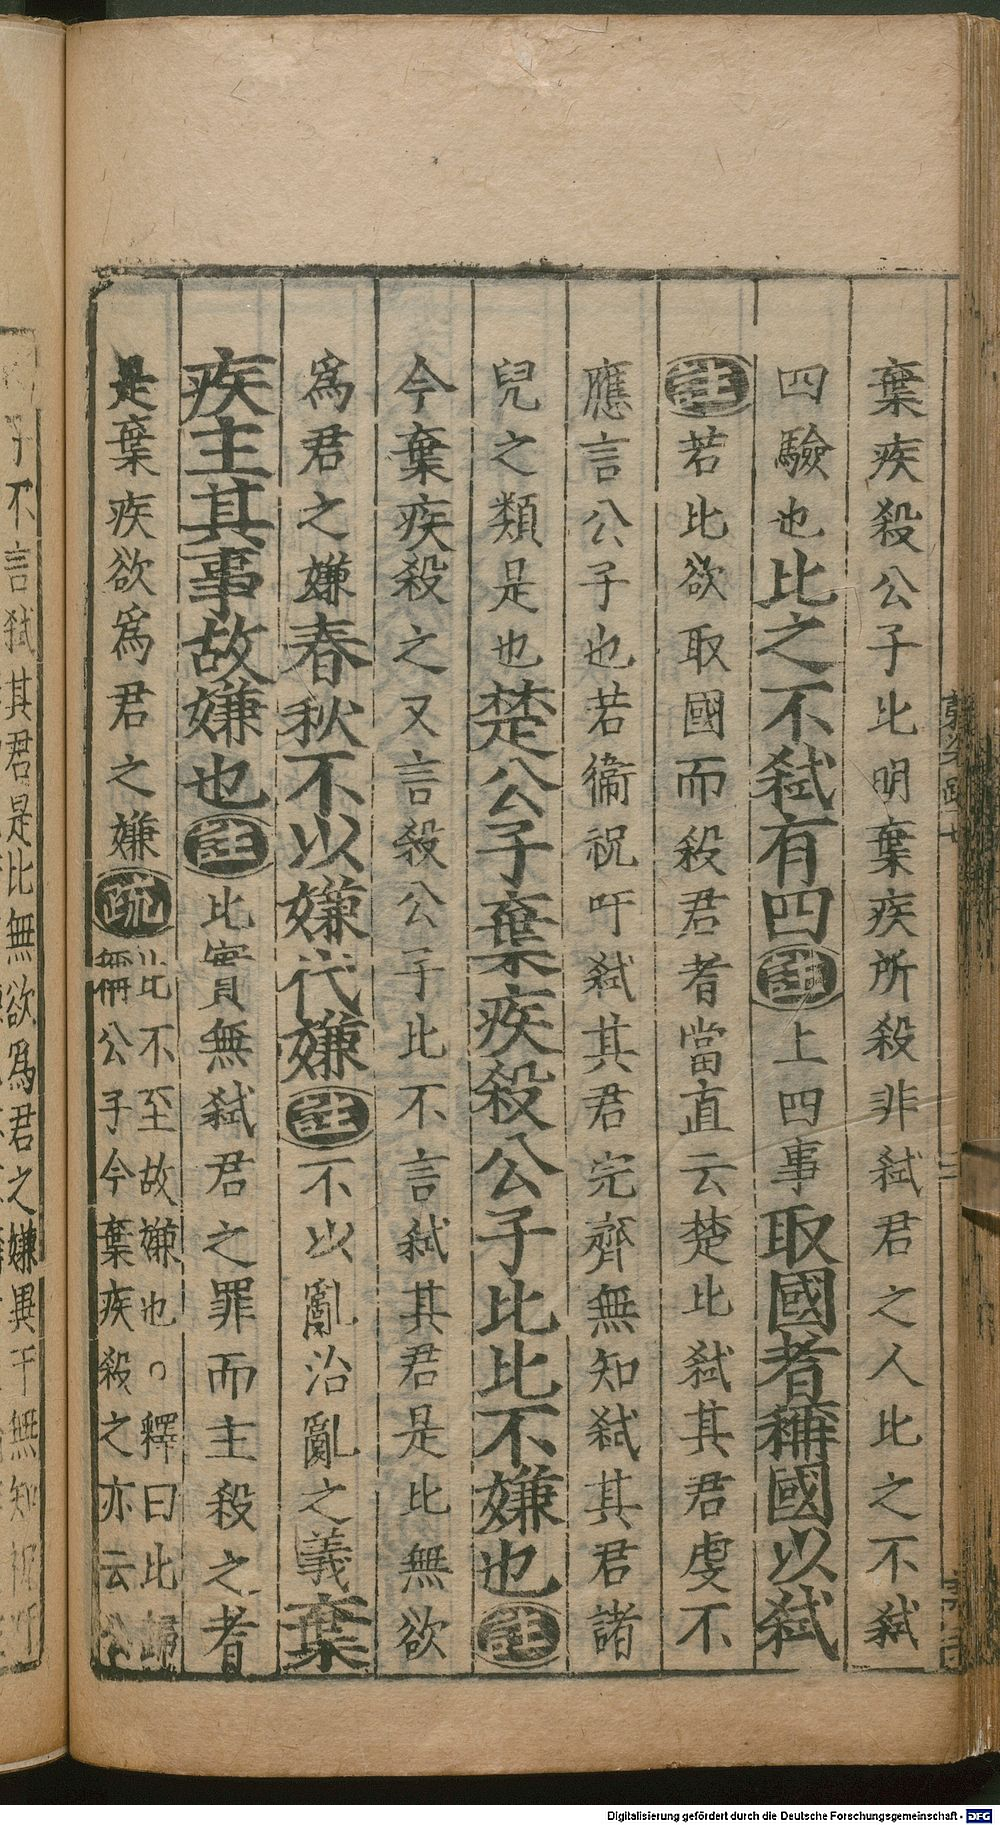 棄疾殺公子比明棄疾所殺非弑君之人比之不弑
四驗也比之不弑有四註上四事取國者稱國以弑
註若比欲取國而殺君者當直云楚比弑其君虔不
應言公子也若衞祝吁弑其君完齊無知弑其君諸
兒之類是也楚公子棄疾殺公子比比不嫌也註
今棄疾殺之又言殺公子比不言弑其君是比無欲
爲君之嫌春秋不以嫌代嫌註不以亂治亂之義棄
疾主其事故嫌也註比實無弑君之罪而主殺之者
是棄疾欲爲君之嫌疏
比不至故嫌也○釋曰比歸
無稱公子今棄疾殺之亦云公
子不言弑其君是比無欲爲君之嫌異于無知祝吁
Digitalisierung gefördert durch die Deutsche Forschungsgemeinschaft - DFG